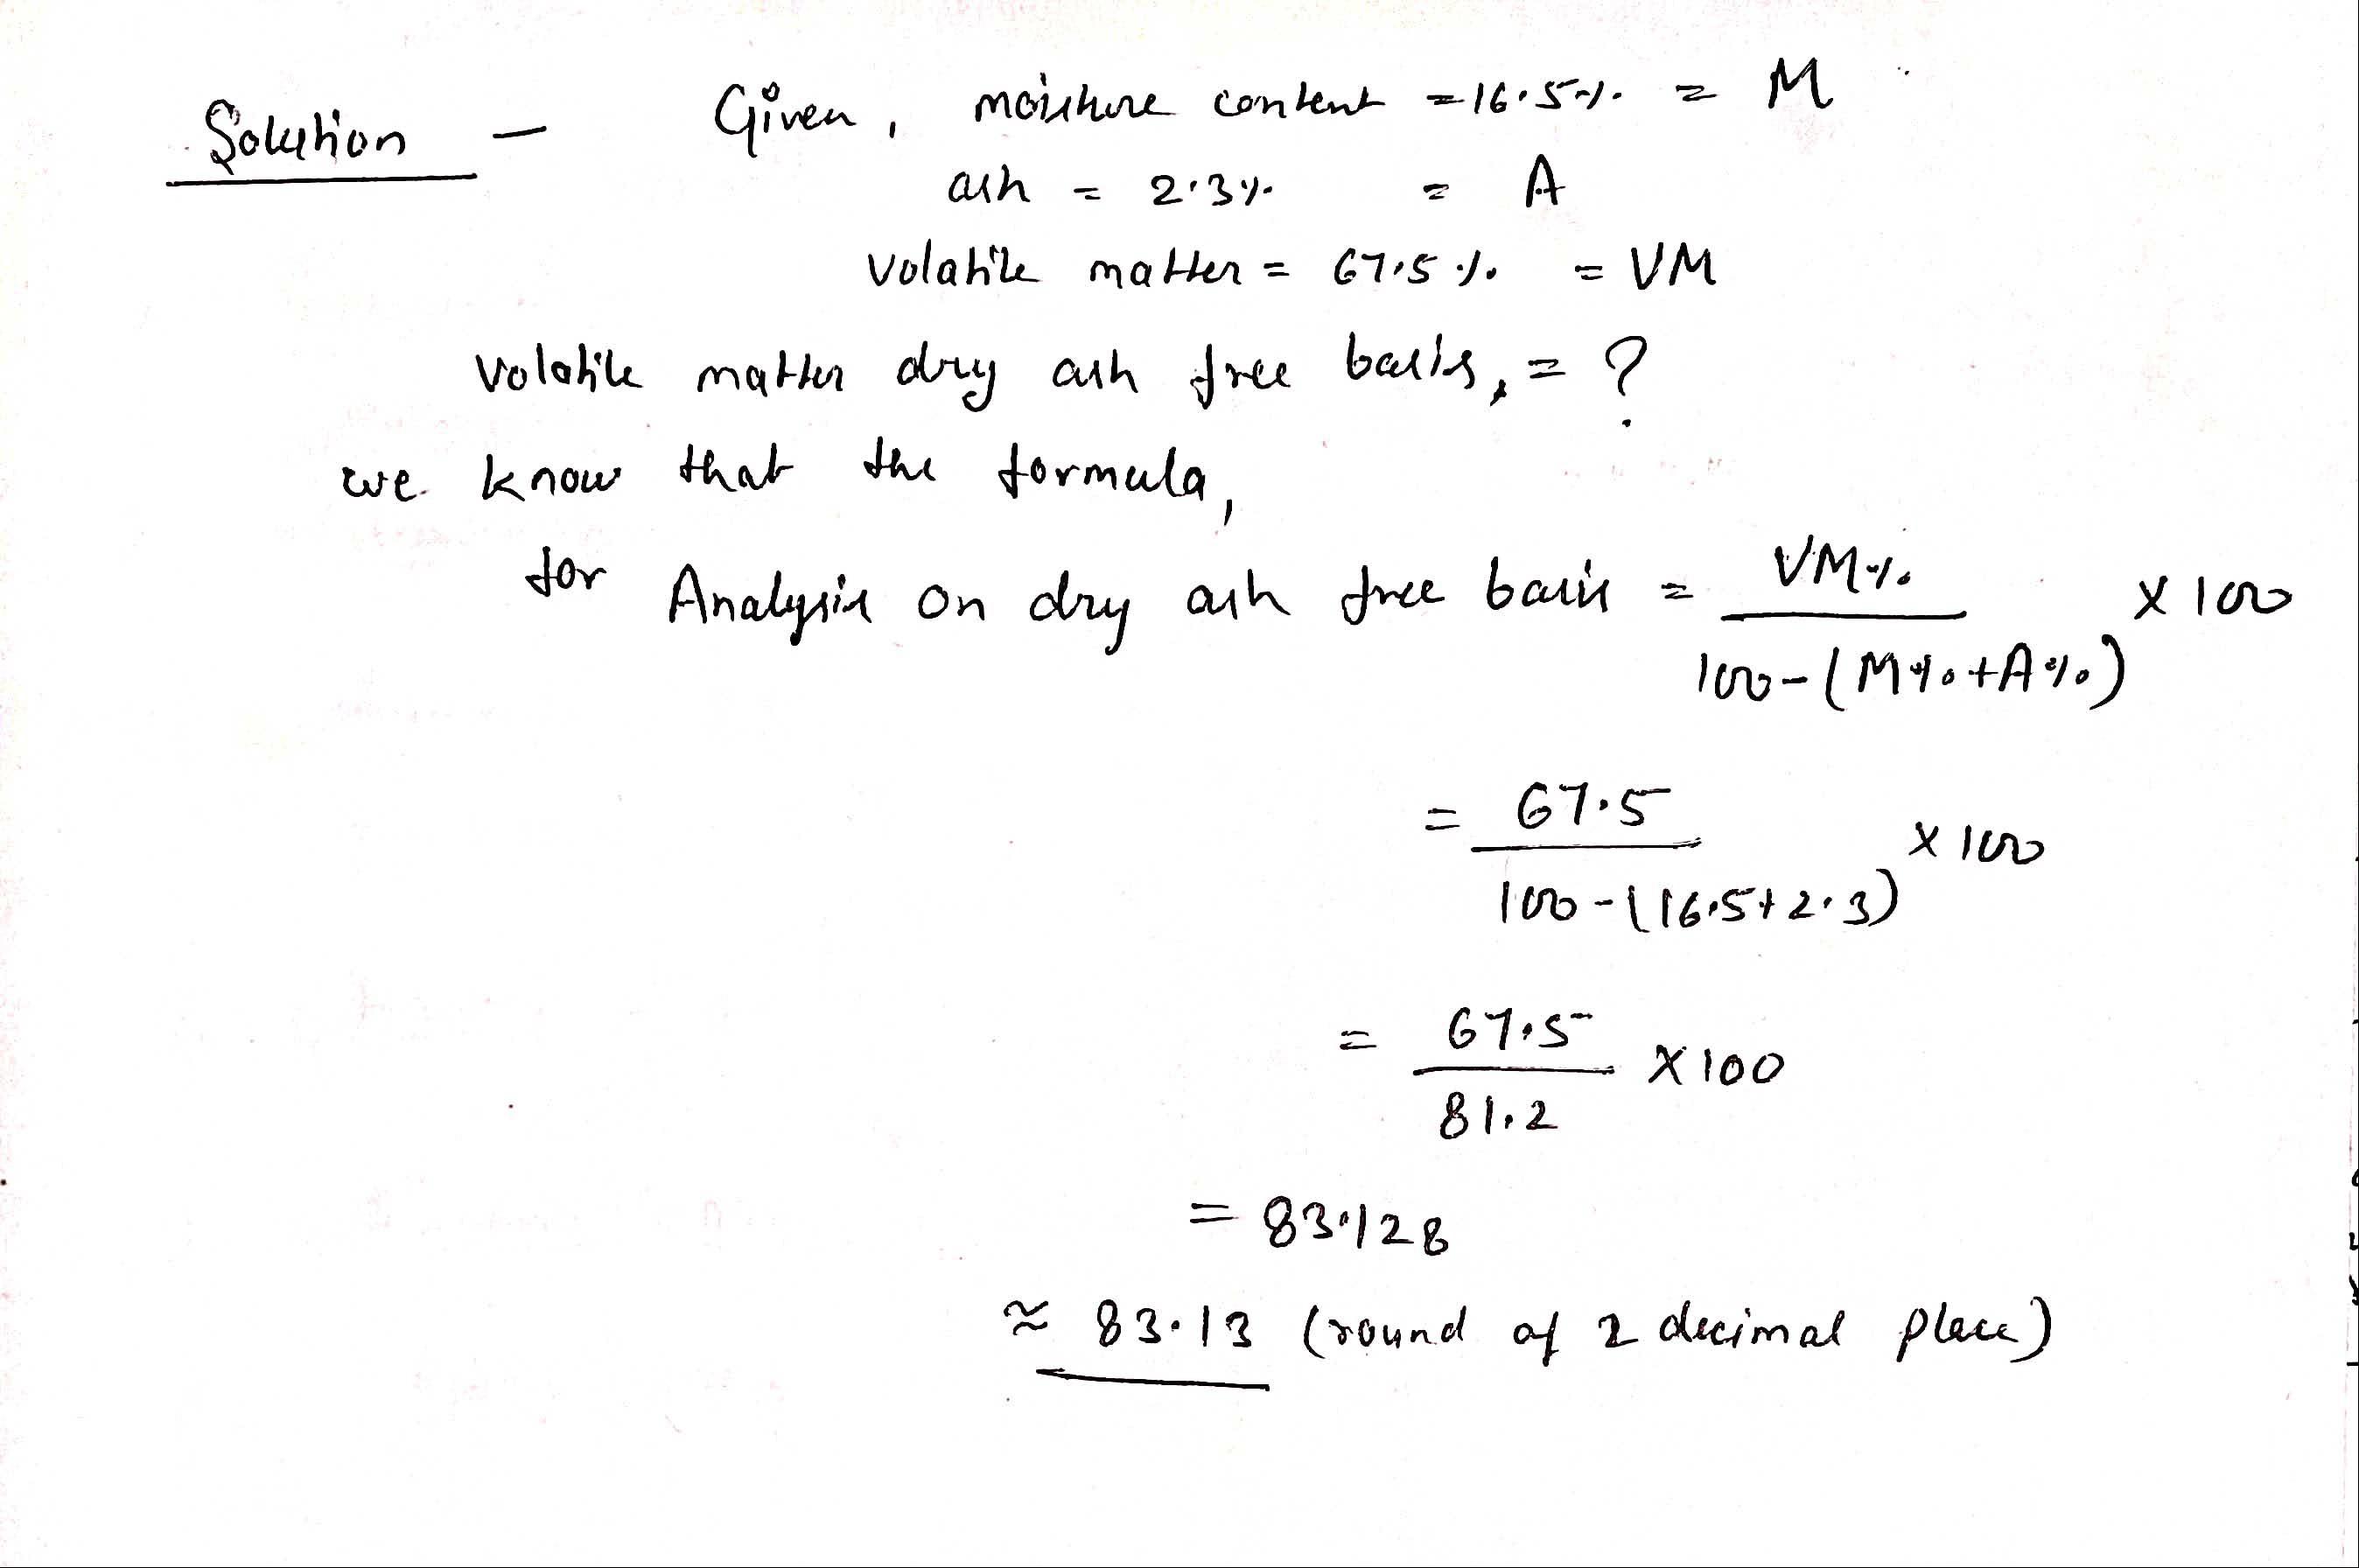 Solution - Given, moisture content = 16.5% = M
ash = 2.3% = A
volatile matter = 67.5% = VM
volatile matter dry ash free basis, = ?
we know that the formula,
for Analysis on dry ash free basis = VM% / 100-(M%+A%) × 100
= 67.5 / 100-(16.5+2.3) × 100
= 67.5 / 81.2 × 100
= 83.128
≈ 83.13 (round of 2 decimal place)